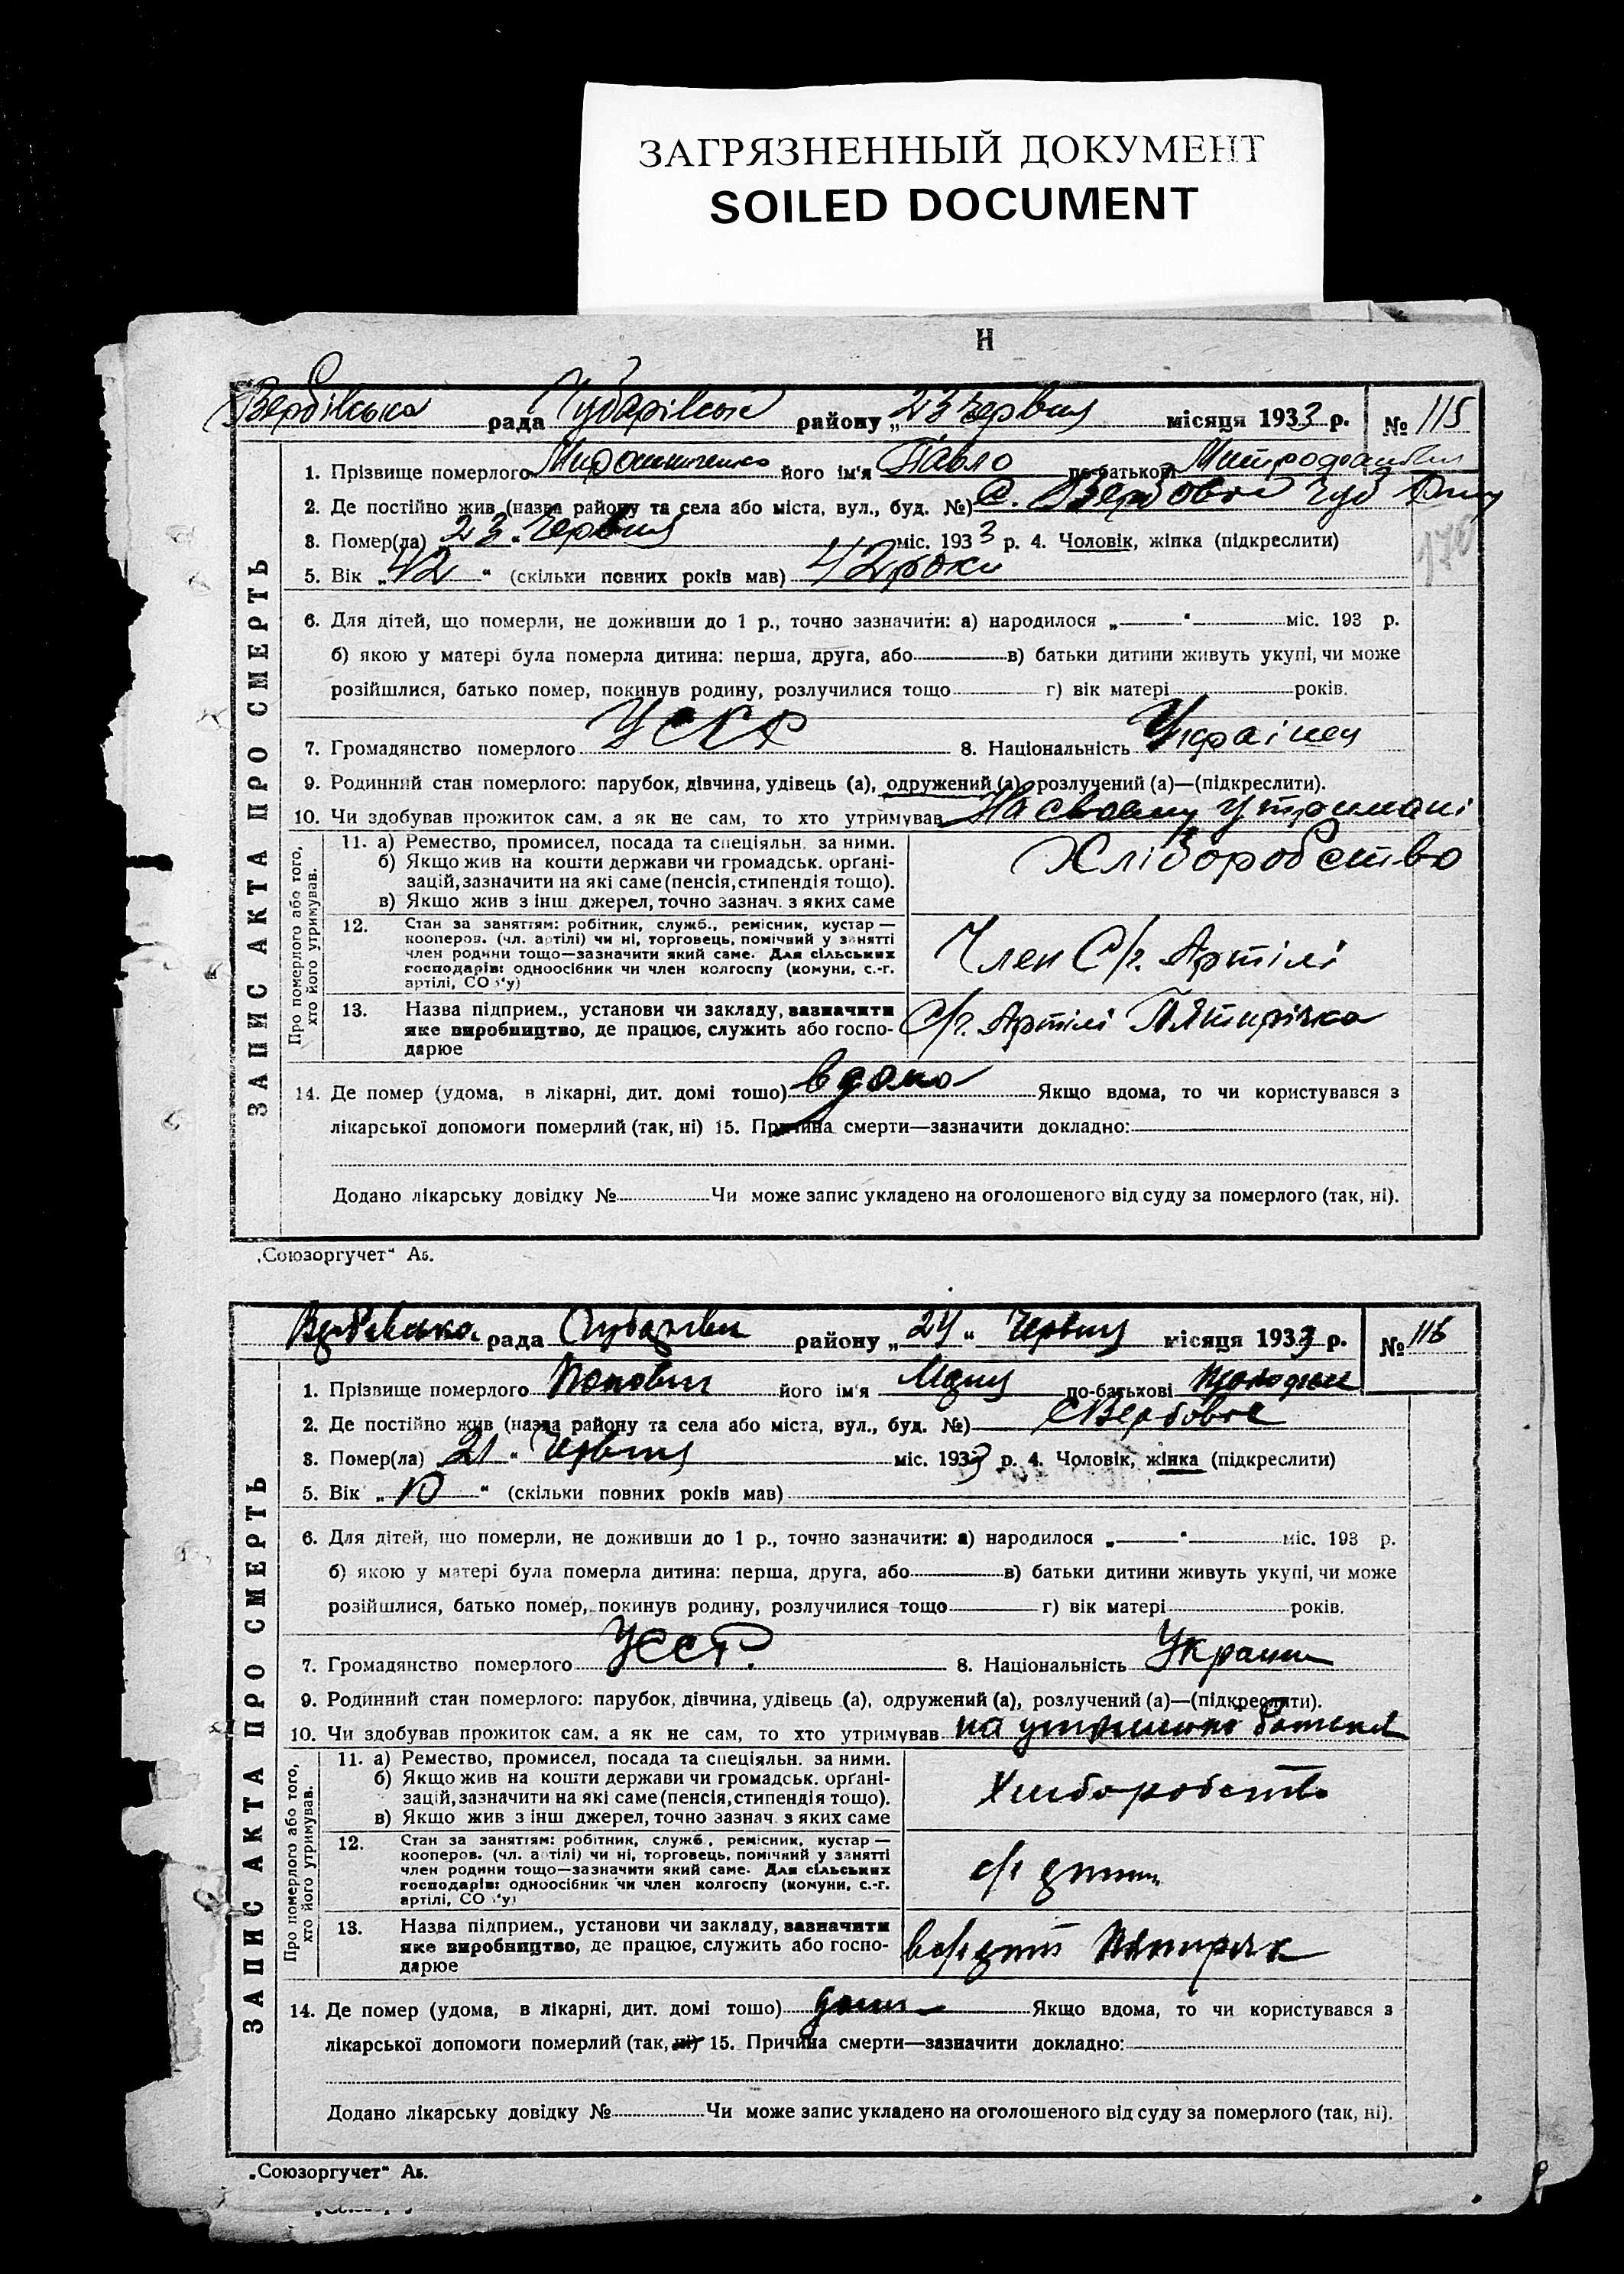 ЗАГРЯЗНЕННЫЙ ДОКУМЕНТ
SOILED DOCUMENT
Н
Вербівська рада Чубарівськ району „23 червня місяця 1933 р. № 115
1. Прізвище померлого Мирошниченко його ім'я Павло по-батькові
2. Де постійно жив (назва району та села або міста, вул., буд. №) С. Вербове Чуб
3. Помер(ла) „23" Червня міс. 1933 р. 4. Чоловік, жінка (підкреслити)
5. Вік „42" (скільки повних років мав) 42 роки
6. Для дітей, що померли, не доживши до 1 р., точно зазначити: а) народилося „ " міс. 193 р.
б) якою у матері була померла дитина: перша, друга, або в) батьки дитини живуть укупі, чи може
розійшлися, батько помер, покинув родину, розлучилися тощо г) вік матері років.
7. Громадянство померлого 8. Національність Українец
9. Родинний стан померлого: парубок, дівчина, удівець (а), одружений (а), розлучений (а)—(підкреслити).
10. Чи здобував прожиток сам, а як не сам, то хто утримував На своему утримані
ЗАПИС АКТА ПРО СМЕРТЬ
Про померлого або того, хто його утримував.
11. а) Ремество, промисел, посада та спеціяльн. за ними.
б) Якщо жив на кошти держави чи громадськ. орґані-
зацій, зазначити на які саме (пенсія, стипендія тощо).
в) Якщо жив з інш джерел, точно зазнач. з яких саме
Хліборобство
12. Стан за заняттям: робітник, служб., ремісник, кустар —
кооперов. (чл. артілі) чи ні, торговець, помічний у занятті
член родини тощо—зазначити який саме. Для сільських
господарів: одноосібник чи член колгоспу (комуни, с.-г.
артілі, СО у)
Член С/г. Артілі
13. Назва підприєм., установи чи закладу, зазначити
яке виробництво, де працює, служить або госпо-
дарює
С/г. Артілі Пятирічка
14. Де помер (удома, в лікарні, дит. домі тощо) вдома Якщо вдома, то чи користувався з
лікарської допомоги померлий (так, ні) 15. Причина смерти—зазначити докладно:
Додано лікарську довідку № Чи може запис укладено на оголошеного від суду за померлого (так, ні).
„Союзоргучет" А5.
Вербівська рада району „24" Червня місяця 1933 р. № 116
1. Прізвище померлого Попович його ім'я по-батькові
2. Де постійно жив (назва району та села або міста, вул., буд. №) с Вербове
3. Помер(ла) „21" Червня міс. 1933 р. 4. Чоловік, жінка (підкреслити)
5. Вік „10" (скільки повних років мав)
6. Для дітей, що померли, не доживши до 1 р., точно зазначити: а) народилося „ " міс. 193 р.
б) якою у матері була померла дитина: перша, друга, або в) батьки дитини живуть укупі, чи може
розійшлися, батько помер, покинув родину, розлучилися тощо г) вік матері років.
7. Громадянство померлого УССР. 8. Національність
9. Родинний стан померлого: парубок, дівчина, удівець (а), одружений (а), розлучений (а)—(підкреслити).
10. Чи здобував прожиток сам, а як не сам, то хто утримував на утримані батька
ЗАПИС АКТА ПРО СМЕРТЬ
Про померлого або того, хто його утримував.
11. а) Ремество, промисел, посада та спеціяльн. за ними.
б) Якщо жив на кошти держави чи громадськ. орґані-
зацій, зазначити на які саме (пенсія, стипендія тощо).
в) Якщо жив з інш джерел, точно зазнач. з яких саме
Хліборобство
12. Стан за заняттям: робітник, служб., ремісник, кустар —
кооперов. (чл. артілі) чи ні, торговець, помічний у занятті
член родини тощо—зазначити який саме. Для сільських
господарів: одноосібник чи член колгоспу (комуни, с.-г.
артілі, СО у)
13. Назва підприєм., установи чи закладу, зазначити
яке виробництво, де працює, служить або госпо-
дарює
14. Де помер (удома, в лікарні, дит. домі тощо) Якщо вдома, то чи користувався з
лікарської допомоги померлий (так, ні) 15. Причина смерти—зазначити докладно:
Додано лікарську довідку № Чи може запис укладено на оголошеного від суду за померлого (так, ні).
„Союзоргучет" А5.